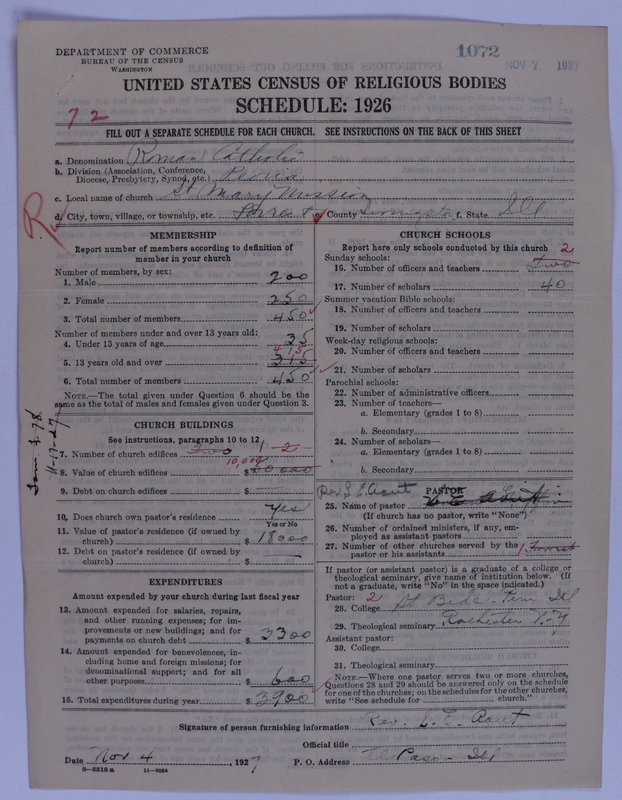 DEPARTMENT OF COMMERCE
BUREAU OF THE CENSUS
WASHINGTON
1072
NOV 7 1927
UNITED STATES CENSUS OF RELIGIOUS BODIES
SCHEDULE: 1926
72
FILL OUT A SEPARATE SCHEDULE FOR EACH CHURCH. SEE INSTRUCTIONS ON THE BACK OF THIS SHEET
a. Denomination Roman Catholic
b. Division (Association, Conference, Diocese, Presbytery, Synod, etc.) Peoria
c. Local name of church St Mary Mission
d. City, town, village, or township, etc. e. County Livingston f. State Ill
MEMBERSHIP
Report number of members according to definition of member in your church
Number of members, by sex:
1. Male 200
2. Female 250
3. Total number of members 450
Number of members under and over 13 years old:
4. Under 13 years of age 35
5. 13 years old and over 315 415
6. Total number of members 450
NOTE.—The total given under Question 6 should be the same as the total of males and females given under Question 3.
CHURCH BUILDINGS
See instructions, paragraphs 10 to 12
7. Number of church edifices Two 1
8. Value of church edifices $ 10,000
9. Debt on church edifices $
10. Does church own pastor's residence yes
Yes or No
11. Value of pastor's residence (if owned by church) $ 18000
12. Debt on pastor's residence (if owned by church) $ —
EXPENDITURES
Amount expended by your church during last fiscal year
13. Amount expended for salaries, repairs, and other running expenses; for improvements or new buildings; and for payments on church debt $ 3300
14. Amount expended for benevolences, including home and foreign missions; for denominational support; and for all other purposes $ 600
15. Total expenditures during year $ 3900
CHURCH SCHOOLS
Report here only schools conducted by this church
Sunday schools:
16. Number of officers and teachers Two 2
17. Number of scholars 40
Summer vacation Bible schools:
18. Number of officers and teachers
19. Number of scholars
Week-day religious schools:
20. Number of officers and teachers
21. Number of scholars
Parochial schools:
22. Number of administrative officers
23. Number of teachers—
a. Elementary (grades 1 to 8)
b. Secondary
24. Number of scholars—
a. Elementary (grades 1 to 8)
b. Secondary
PASTOR
25. Name of pastor Rev
(If church has no pastor, write "None")
26. Number of ordained ministers, if any, employed as assistant pastors
27. Number of other churches served by the pastor or his assistants 1
If pastor (or assistant pastor) is a graduate of a college or theological seminary, give name of institution below. (If not a graduate, write "No" in the space indicated.)
Pastor: 2
28. College St Bede Ill
29. Theological seminary Rochester N-Y
Assistant pastor:
30. College
31. Theological seminary
NOTE.—Where one pastor serves two or more churches, Questions 28 and 29 should be answered only on the schedule for one of the churches; on the schedules for the other churches, write "See schedule for church."
Signature of person furnishing information Rev.
Official title
Date Nov 4, 1927 P. O. Address Paso - Ill
8—5518 a 11—9064